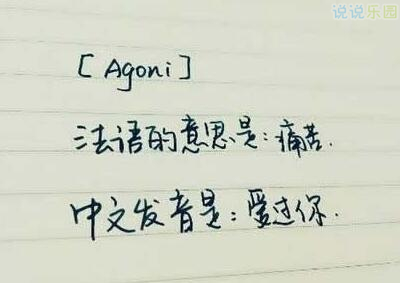 说说乐园
[Agoni]
法语的意思是:痛苦.
中文发音是:爱过你.